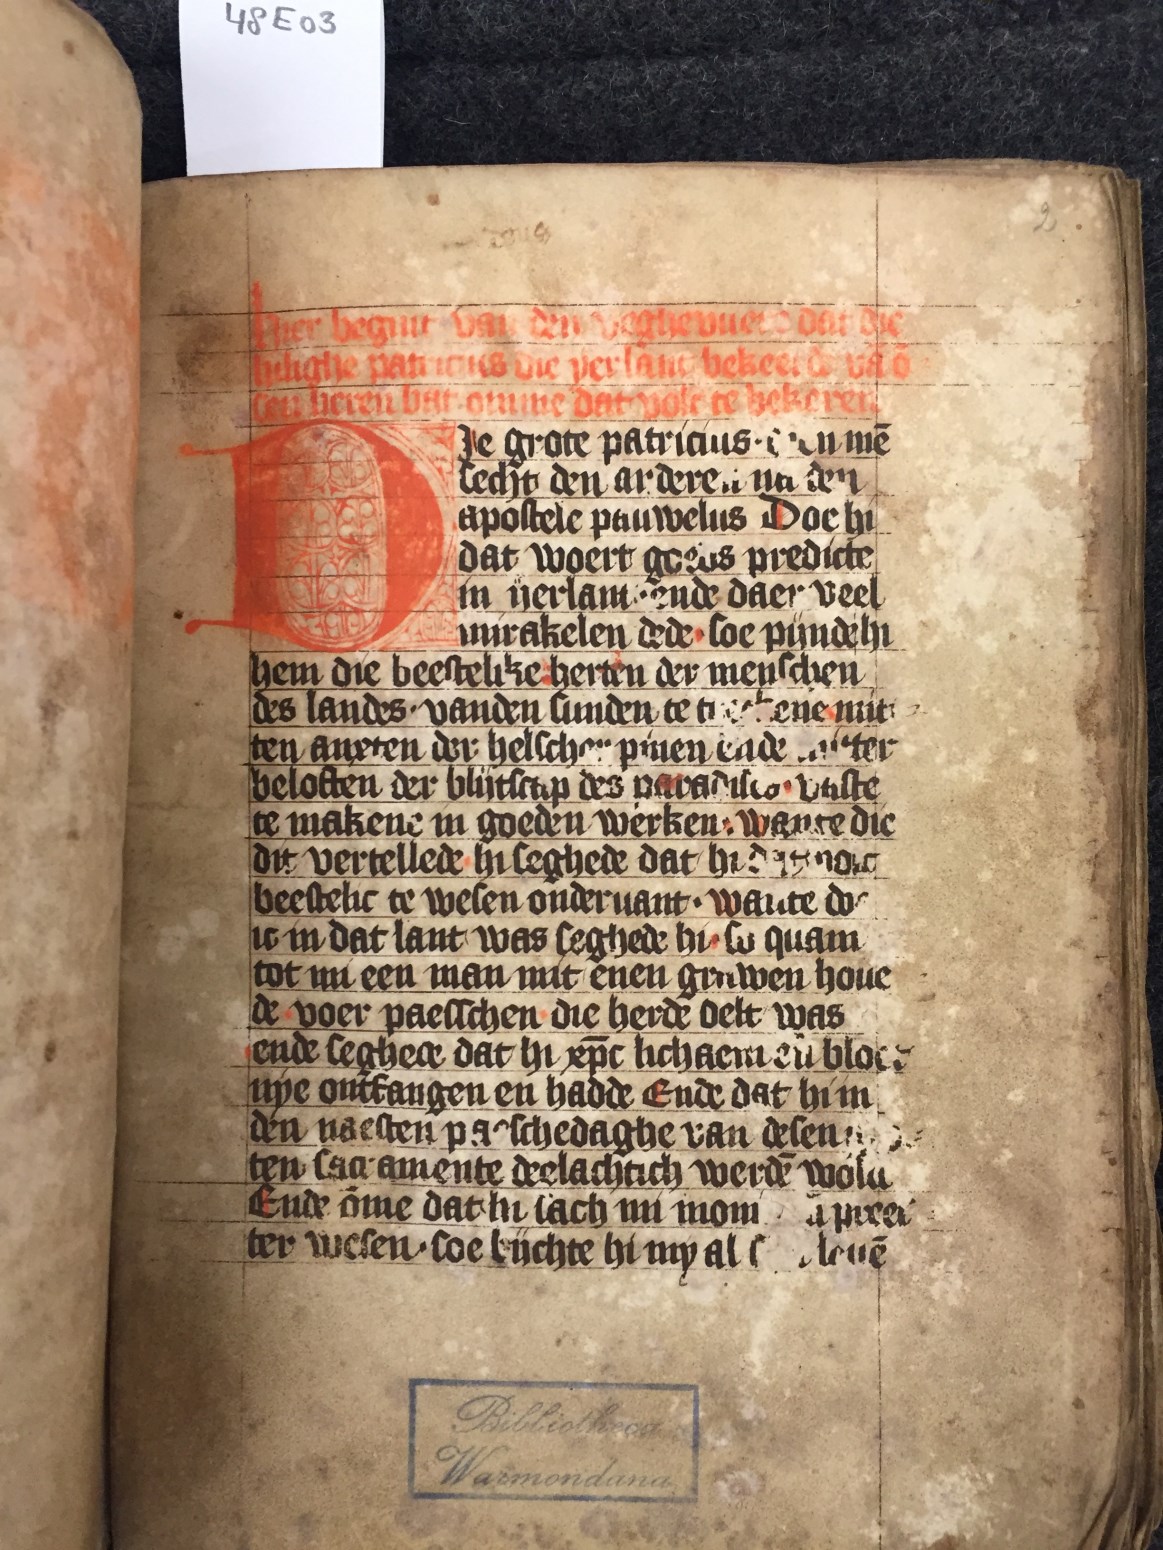 48E03
2
hier begint van den veghevuere dat die
hilighe patricius die yerlant bekeerde va ō
sen heren bat omme dat volc te bekeren
Die grote patricius mē
secht den anderen na den
apostele pauwelus Doe hi
dat woert godus predicte
in yerlant ende daer veel
mirakelen dede soe pijnde hi
hem die beestelike herten der menschen
des landes vanden sunden te mit
ten anxten der helscher pinen ende
beloften der blijtscap des paradiso vaste
te makene in goeden werken wante die
dit vertellede hi seghede dat hi
beestelic te wesen ondervant wante do
ic in dat lant was seghede hi so quam
tot mi een man mit enen grawen hove
de voer paesschen die herde oelt was
ende seghede dat hi xp̄c lichaem en̄ bloet
nye ontfangen en hadde Ende dat hi in
den naesten paeschedaghe van desen
ten sacramente deelachtich werdē
Ende ōme dat hi sach mi
ter wesen soe biichte hi my al
Bibliotheca
Warmondana